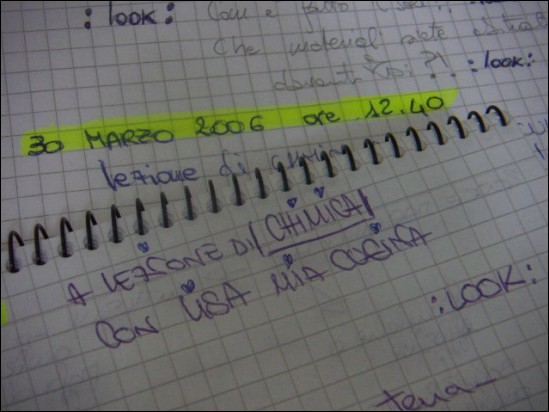 :look:
Che material
davanti ?! :look:
30 MARZO 2006 ore 12.40
lezione di
A LEZIONE DI CHIMICA
CON LISA MIA CUGINA
:LOOK: